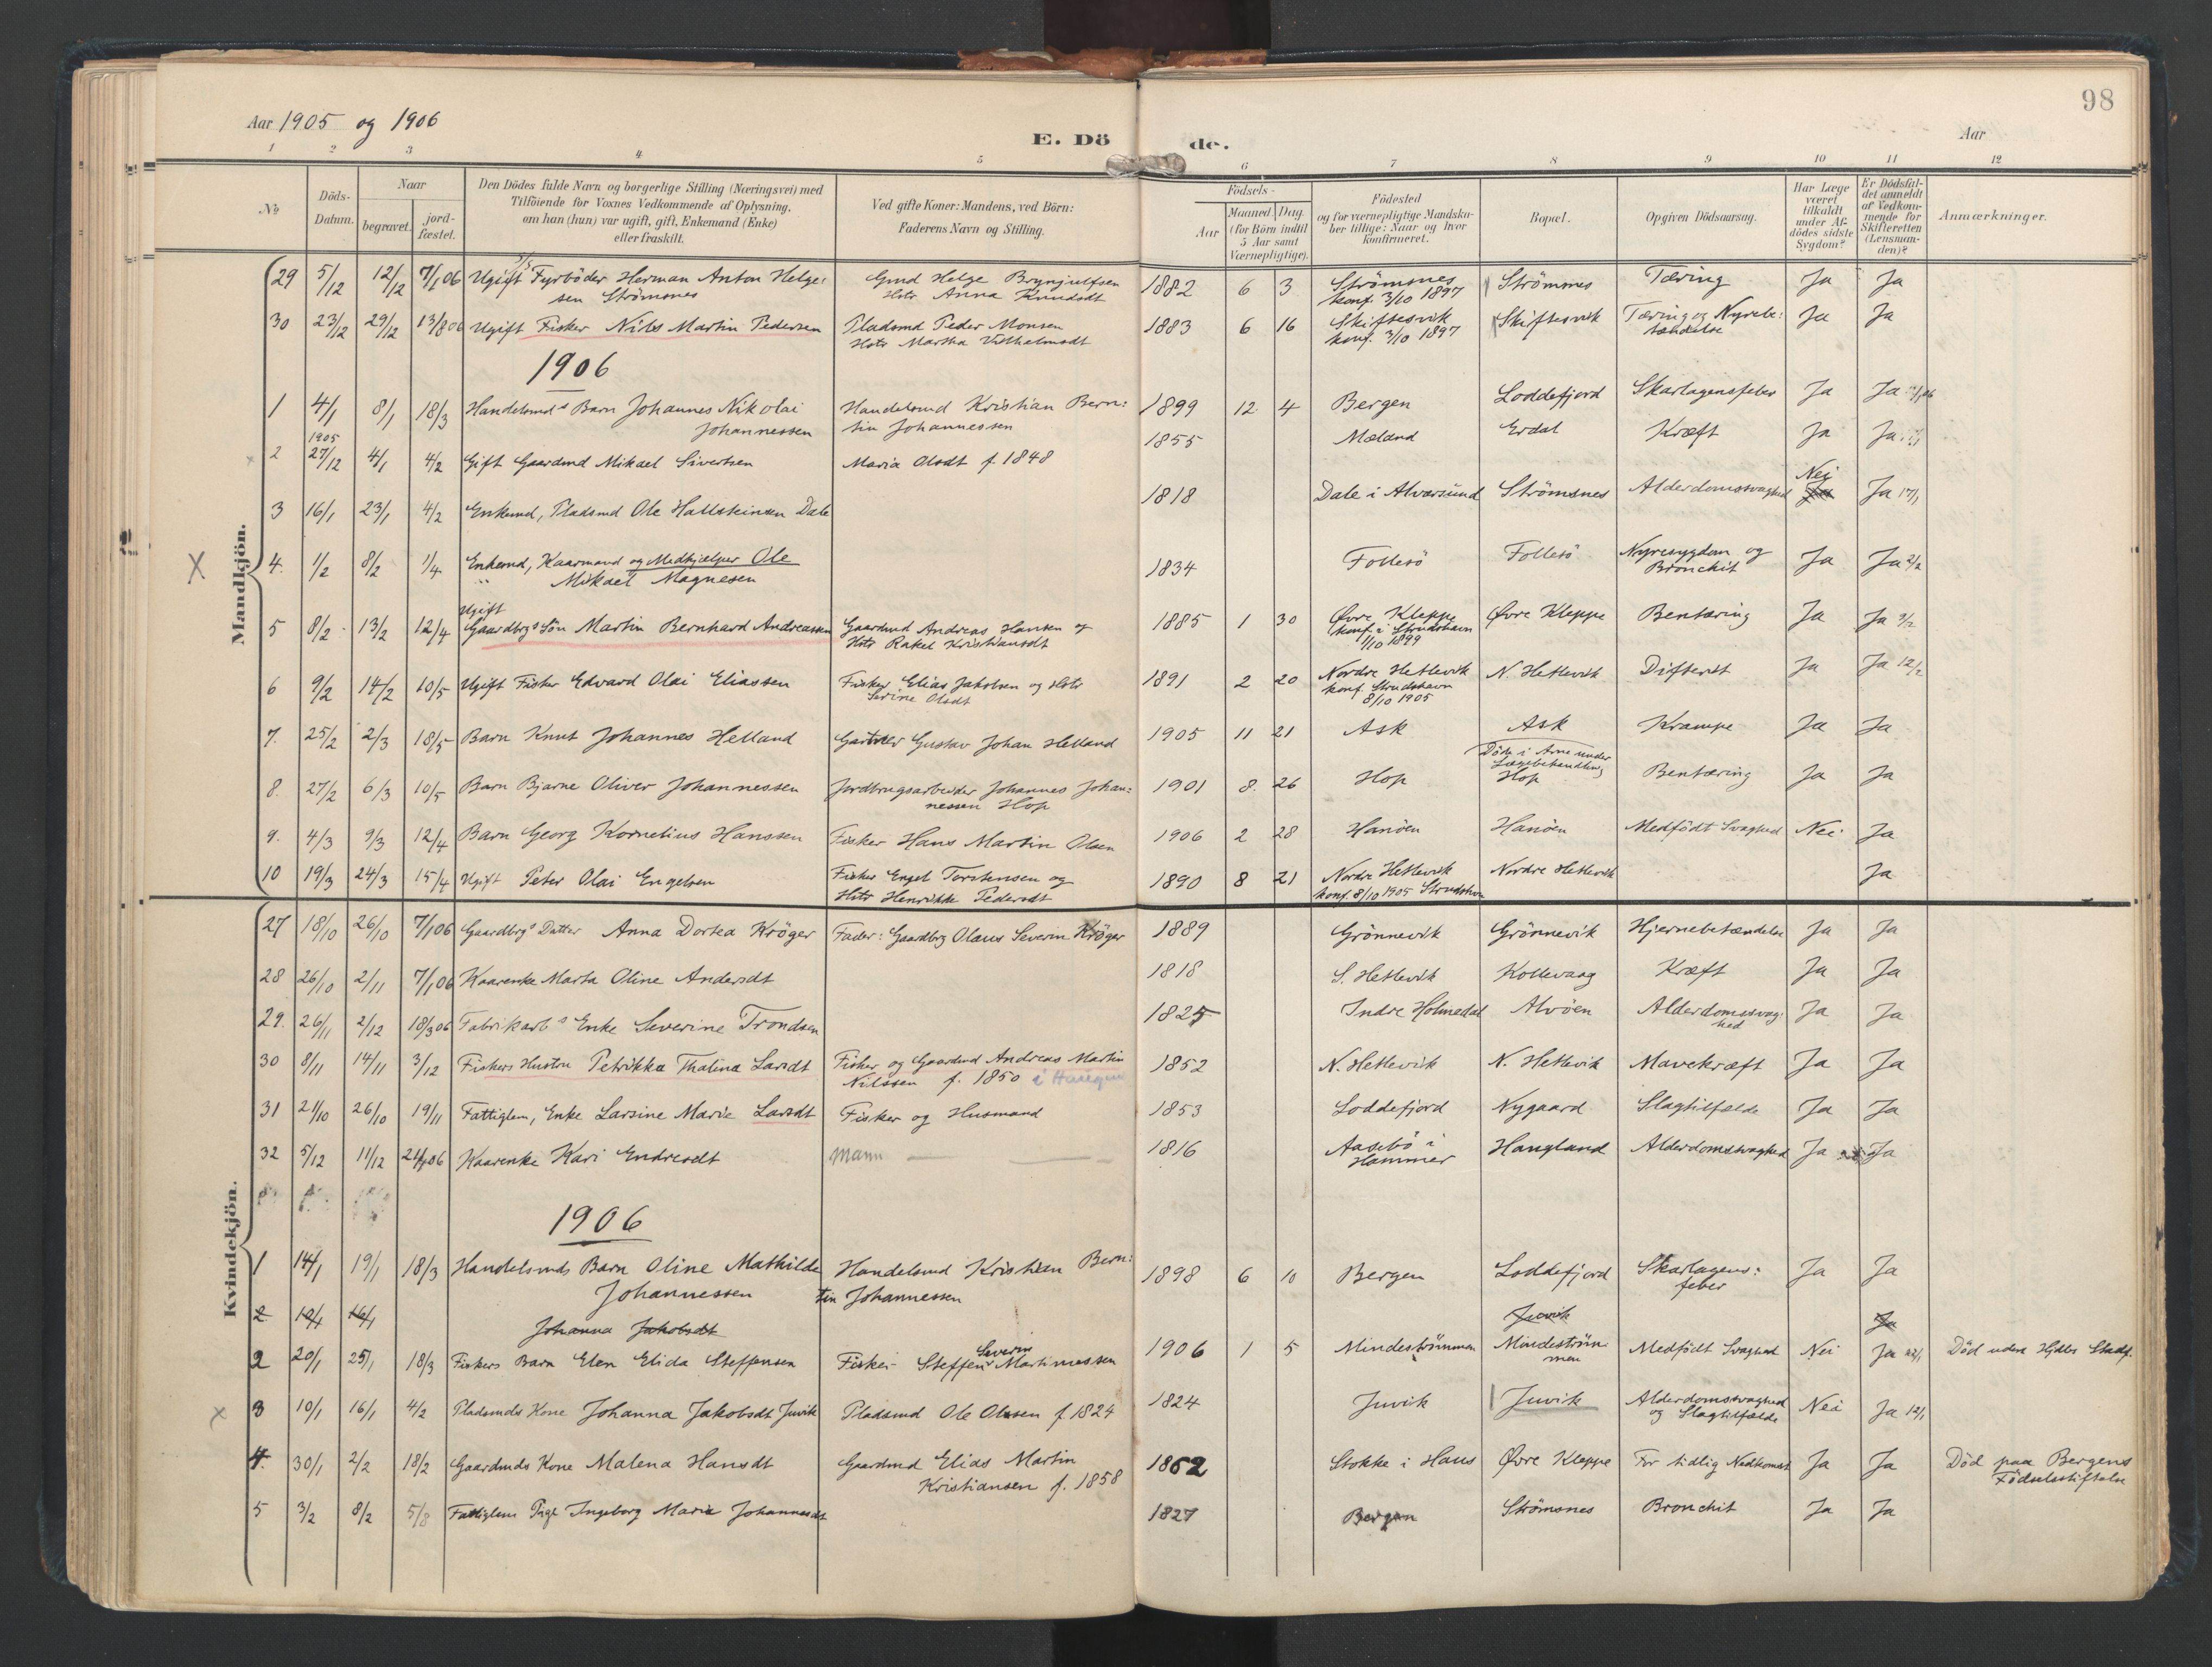 98
Aar 1905 og 1906
E. Dö de.
Aar
1 2 3 4 5 6 7 8 9 10 11 12
No
Döds-Datum.
Naar
begravet.
jord-fæstet.
Den Dödes fulde Navn og borgerlige Stilling (Næringsvei) med
Tilföiende for Voxnes Vedkommende af Oplysning,
om han (hun) var ugift, gift, Enkemand (Enke)
eller fraskilt.
Ved gifte Koner: Mandens, ved Börn:
Faderens Navn og Stilling.
Födsels-
Aar
Maaned. Dag.
(for Börn indtil
5 Aar samt
Værnepligtige).
Födested
og for værnepligtige Mandska-
ber tillige: Naar og hvor
konfirmeret.
Bopæl.
Opgiven Dödsaarsag.
Har Læge
været
tilkaldt
under Af-
dödes sidste
Sygdom?
Er Dödsfal-
det anmeldt
af Vedkom-
mende for
Skifteretten
(Lensman-
den)?
Anmærkninger.
Mandkjön.
29 5/12 12/12 7/1 06 Ugift Fyrböder Herman Anton Helge- Gmd Helge Brynjulfsen 1882 6 3 Strömsnes Strömsnes Tæring Ja Ja
sen Strömsnes Hstr Anna Knudsdt konf. 3/10 1897
30 23/12 29/12 13/8 06 Ugift Fisker Nils Martin Pedersen Pladsmd Peder Monsen 1883 6 16 Skiftesvik Skiftesvik Tæring og Nyrebe- Ja Ja
Hstr Martha Vilhelmsdt konf. 3/10 1897 tændelse
1906
1 4/1 8/1 18/3 Handelsmds Barn Johannes Nikolai Handelsmd Kristian Bern: 1899 12 4 Bergen Loddefjord Skarlagensfeber Ja Ja
Johannessen tin Johannessen
1905
2 27/12 4/1 4/2 Gift Gaardmd Mikael Sivertsen Maria Olsdt f. 1848 1855 Mæland Erdal Kræft Ja Ja
3 16/1 23/1 4/2 Enkemd, Pladsmd Ole Hallsteinsen Dale 1818 Dale i Alversund Strömsnes Alderdomssvaghed Nei Ja Ja 17/1
4. 1/2 8/2 1/4 Enkemd, Kaarmand og Medhjælper Ole 1834 Follesö Follesö Nyresygdom og Ja Ja 2/2
Mikael Magnesen Bronchit
Ugift
5 8/2 13/2 12/4 Gaardbrgs Sön Martin Bernhard Andreassen Gaardmd Andreas Hansen og 1885 1 30 Øvre Kleppe Øvre Kleppe Bentæring Ja Ja 9/2
Hstr Rakel Kristiansdt konf. i Strudshavn
1/10 1899
6 9/2 14/2 10/5 Ugift Fisker Edvard Olai Eliassen Fisker Elias Jakobsen og Hstr 1891 2 20 Nordre Hetlevik N. Hetlevik Difterit Ja Ja 12/2
Serine Olsdt konf. Strudshavn
8/10 1905
7. 25/2 2/3 18/5 Barn Knut Johannes Helland Gartner Gustav Johan Helland 1905 11 21 Ask Ask Krampe Ja Ja
Döde i Arne under
Lægebehandling
8. 27/2 6/3 10/5 Barn Bjarne Oliver Johannessen Jordbrugsarbeider Johannes Johan- 1901 8 26 Hop Hop Bentæring Ja Ja
nessen Hop
9. 4/3 9/3 12/4 Barn Georg Kornelius Hanssen Fisker Hans Martin Olsen 1906 2 28 Hanöen Hanöen Medfödt Svaghed Nei Ja
10 19/3 24/3 15/4 Ugift Peter Olai Engelsen Fisker Engel Torstensen og 1890 8 21 Nordre Hetlevik Nordre Hetlevik Ja
Hstr Henrikke Pedersdt konf. 8/10 1905 Strudshavn
Kvindekjön.
27 18/10 26/10 7/1 06 Gaardbrgs Datter Anna Dortea Kröger Fader: Gaardbrg Olaus Severin Kröger 1889 Grönnevik Grönnevik Hjernebetændelse Ja Ja
28 26/10 2/11 7/1 06 Kaarenke Marta Oline Andersdt 1818 S. Hetlevik Kollevaag Kræft Ja Ja
29. 26/11 2/12 18/3 06 Fabrikarbs Enke Severine Trondsen 1825 Indre Holmedal Alvöen Alderdomssvag- Ja Ja
hed
30 8/11 14/11 3/12 Fiskers Hustru Petrikka Thalina Larsdt Fisker og Gaardmd Andreas Martin 1852 N. Hetlevik N. Hetlevik Mavekræft Ja Ja
Nilssen f. 1850 i Haugen
31 21/10 26/10 19/11 Fattiglem, Enke Larsine Marie Larsdt Fisker og Husmand 1853 Loddefjord Nygaard Slagtilfælde Ja Ja
32 5/12 11/12 21/1 06 Kaarenke Kari Endresdt mann — — 1816 Aasebö i Haugland Alderdomssvaghed Ja Ja
Hammer
1906
1 14/1 19/1 18/3 Handelsmds Barn Oline Mathilde Handelsmd Kristian Bern: 1898 6 10 Bergen Loddefjord Skarlagens: Ja Ja
Johannessen tin Johannessen feber
2 10/1 16/1 Johanna Jakobsdt Juvik Ja
2 20/1 25/1 18/3 Fiskers Barn Elen Elida Steffensen Fisker Steffen Severin Martinussen 1906 1 5 Mindeströmmen Mindeström- Medfödt Svaghed Nei Ja 22/1 Död uden Hjdbs Stadf.
men
3 10/1 16/1 4/2 Pladsmds Kone Johanna Jakobsdt Juvik Pladsmd Ole Olssen f. 1824 1824 Juvik Juvik Alderdomssvaghed Nei Ja 12/1
og Slagtilfælde
4. 30/1 2/2 18/2 Gaardmds Kone Malena Hansdt Gaardmd Elias Martin 1862 Stokke i Haus Øvre Kleppe For tidlig Nedkomst Ja Ja Död paa Bergens
Kristiansen f. 1858 Födselsstiftelse
5 3/2 8/2 5/8 Fattiglem Pige Ingeborg Marie Johannesdt 1827 Bergen Strömsnes Bronchit Ja Ja